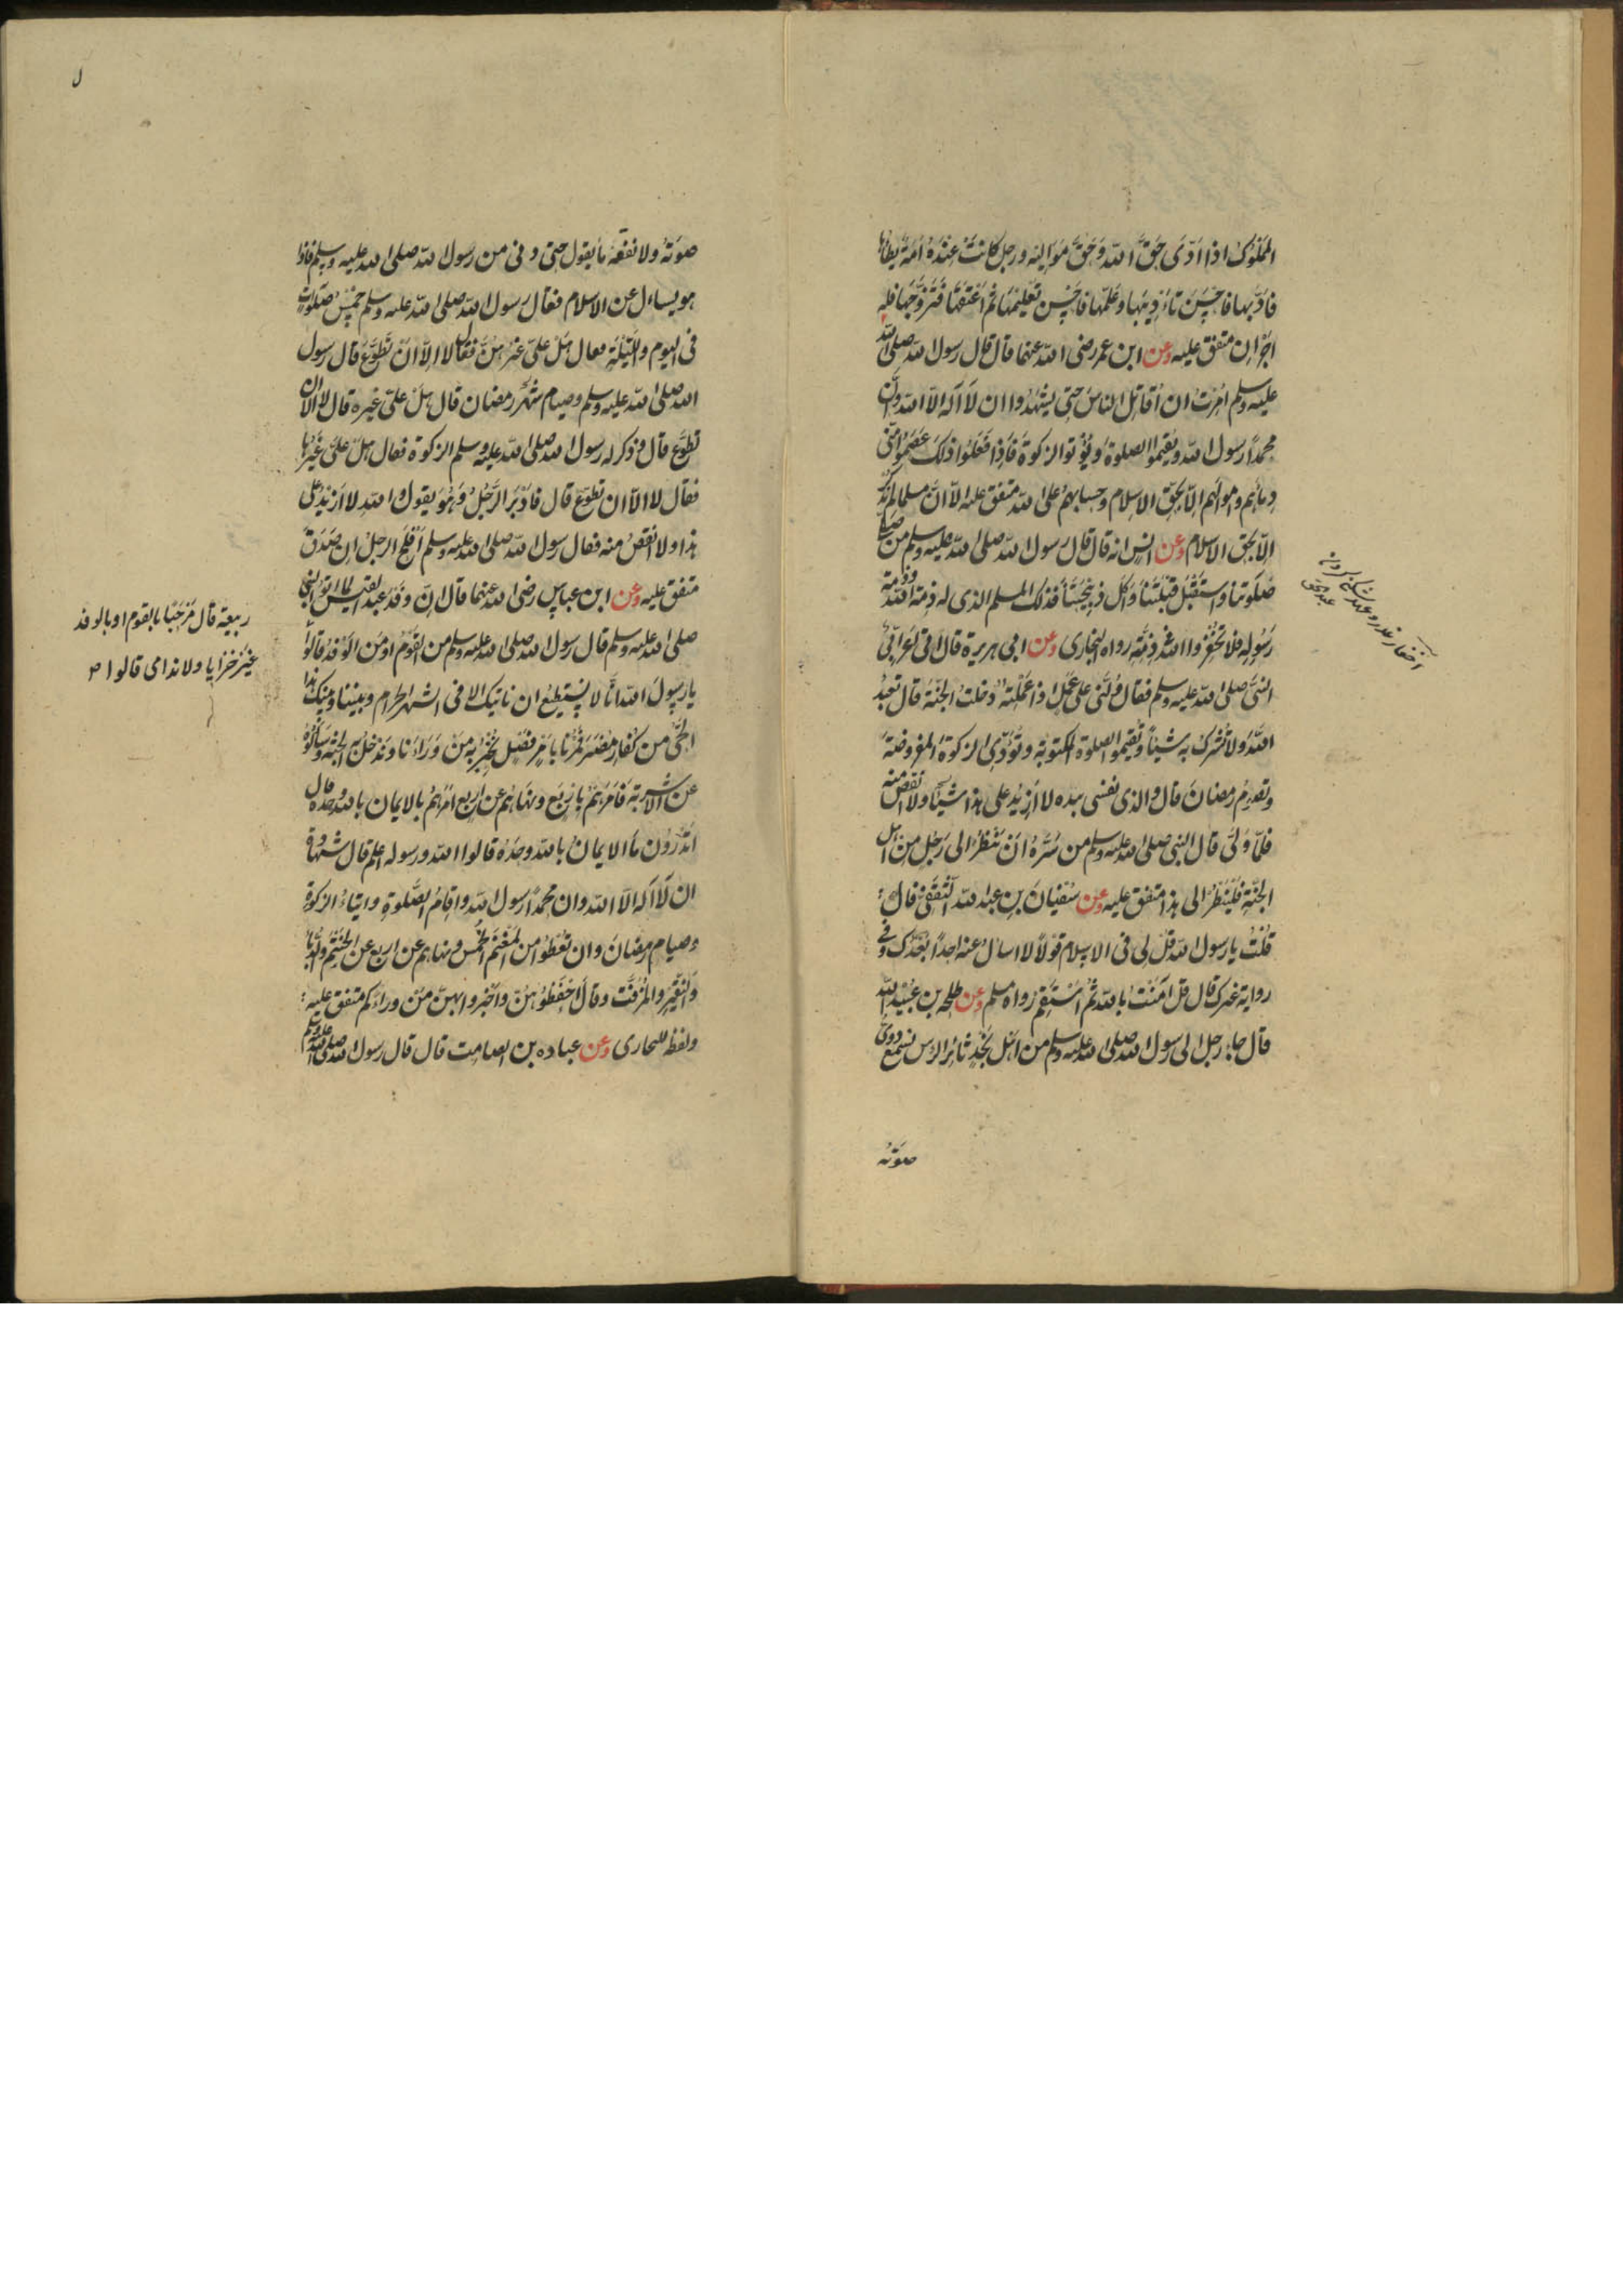 المَمْلُوكُ اذا ادّى حَقَّ الله وَحَقَّ مَوَالِيْه ورجل كَانَتْ عِنْدَهُ اَمَةٌ يَطَأُها
فادّبها فاحْسَنَ تَأْدِيْبَها وعَلَّمَها فاحْسَن تَعْلِيْمَها ثم اَعْتَقَها فَتَزَوَّجَها فله
اجْرَان متفق عليه وعن ابن عمر رضى الله عنهما قال قال رسول الله صلى الله
عليه وسلم اُمِرْتُ ان اُقاتِلَ الناسَ حتى يشهدُوا ان لَا اله الّا الله وانّ
محمدًا رسول الله ويُقِيمُوا الصلوة ويُؤْتوا الزكوة فَاِذا فَعَلُوا ذلكَ عَصَمُوا منّى
دِمائَهم واموالهم الّا بحقّ الاسلام وحسابهمْ على الله متفق عليه الّا انّ مسلما لم يذكر
الّا بحق الاسلام وعن انس انه قال قال رسول الله صلى الله عليه وسلم من صلّى
صَلوتنا واسْتَقْبَلَ قِبْلَتَنا وَاَكَل ذبِيْحَتَنا فذلك المسلم الذى له ذمة الله وذمة
رَسُوله فلا تُخْفِرُوا الله فى ذِمَّتِه رواه البخارى وعن ابى هريرة قال اَتى اَعْرَابِىٌّ
النبىَّ صلى الله عليه وسلم فقال دُلَّنى على عَمَلٍ اذا عَمِلْتُه دَخلتُ الجنَّةَ قال تعبدُ
اللهَ ولا تُشْرِكُ به شيئاً وتُقيمُ الصلوة المكتوبة وتُؤَدِّى الزكوةَ المفروضةَ
وتصومُ رمضانَ قال والذى نفسى بيده لا ازيدُ على هذا شيئًا ولا انقص منه
فلمّا وَلّى قال النبى صلى الله عليه وسلم من سَرَّهُ اَنْ يَنْظُرَ الى رَجُلٍ من اهل
الجَنَّةِ فَلْيَنْظُرْ الى هذا متفق عليه وعن سُفيانَ بنِ عبد الله الثَّقَفِىّ قال
قُلْتُ يا رسول الله قُلْ لى فى الاسلام قَوْلًا لا اسالُ عنه احدًا بَعْدَكَ وفى
رواية غيرك قال قل اٰمَنْتُ بالله ثم اسْتَقِمْ رواه مسلم وعن طلحه بن عُبَيْد الله
قال جاء رجل الى رسول الله صلى الله عليه وسلم من اَهْل نَجْدٍ ثائرَ الرّاس نسمع دوىّ
صَوْته
صوته ولا نفقه ما يقول حتى دنى من رسول الله صلى الله عليه وسلم فاذا
هو يساءل عن الاسلام فقال رسول الله صلى الله عليه وسلم خَمْسُ صلَوٰتٍ
فى اليوم واللَّيْلَة فقال هَلْ علىّ غيْرُهُنَّ فقال لا الّا اَنْ تَطَوَّعَ قال رسول
الله صلى الله عليه وسلم وصيام شَهْر رمضان قال هل علىّ غيره قال لا الّا ان
تَطوّع قال وذكر له رسول الله صلى الله عليه وسلم الزكوة فقال هل علىّ غيرها
فقال لا الّا ان تطوّع قال فادْبَرَ الرَّجُلُ وَهُوَ يقول والله لا ازيدُ على
هذا ولا انْقصُ منه فقال رسول الله صلى الله عليه وسلم اَفْلَحَ الرجلُ ان صَدَقَ
متفق عليه وعن ابن عباس رضى الله عنهما قال انّ وفد عبد القيس لمّا اتوا النبىّ
صلى الله عليه وسلم قال رسول الله صلى الله عليه وسلم من القَوْمُ او من الوَفْدُ قالوا
ربيعة قال مَرْحَبًا بالقوم او بالوفد
غَيْرَ خزايا ولا ندامى قالوا
يا رسولَ الله انّا لا نستطيعُ ان ناتيك الا فى الشهر الحرام وبيننا وبينك هذا
الحَىّ من كفار مُضَرَ فَمُرْنا بامْرٍ فَصْلٍ نُخْبِرُ به مَنْ وَرَاءَنا وندخل به الجنة وسالُوهُ
عن الاشربَة فَاَمَرَهُمْ باربَعٍ ونهاهُمْ عن اربع اَمَرَهُمْ بالايمان بالله وحده قال
اَتَدْرُوْن مَا الايمانُ بالله وحدَهُ قالوا الله ورسوله اعلم قال شهادة
ان لَا الٰه الّا الله وان محمدًا رسول الله واِقامُ الصَّلوةِ وايتاءُ الزكوة
وصيام رمضانَ وان تُعْطُوا من المَغْنَم الخُمُس ونهاهم عن اربع عن الحَنْتَم والدُّبّاء
والنَّقِيْر والمُزَفَّت وقال احفَظُوْهُنّ واخبروا بهنّ مَنْ وراءكم متفق عليه
ولفظه للبخارى وعن عباده بن الصامت قال قال رسول الله صلى الله عليه وسلم